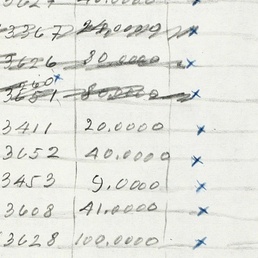 3367 20.0000 x
3626 80.0000 x
60 x
3651 80.0000 x
3411 20.0000 x
3652 40.0000 x
3453 9.0000 x
3608 41.0000 x
3628 100.0000 x